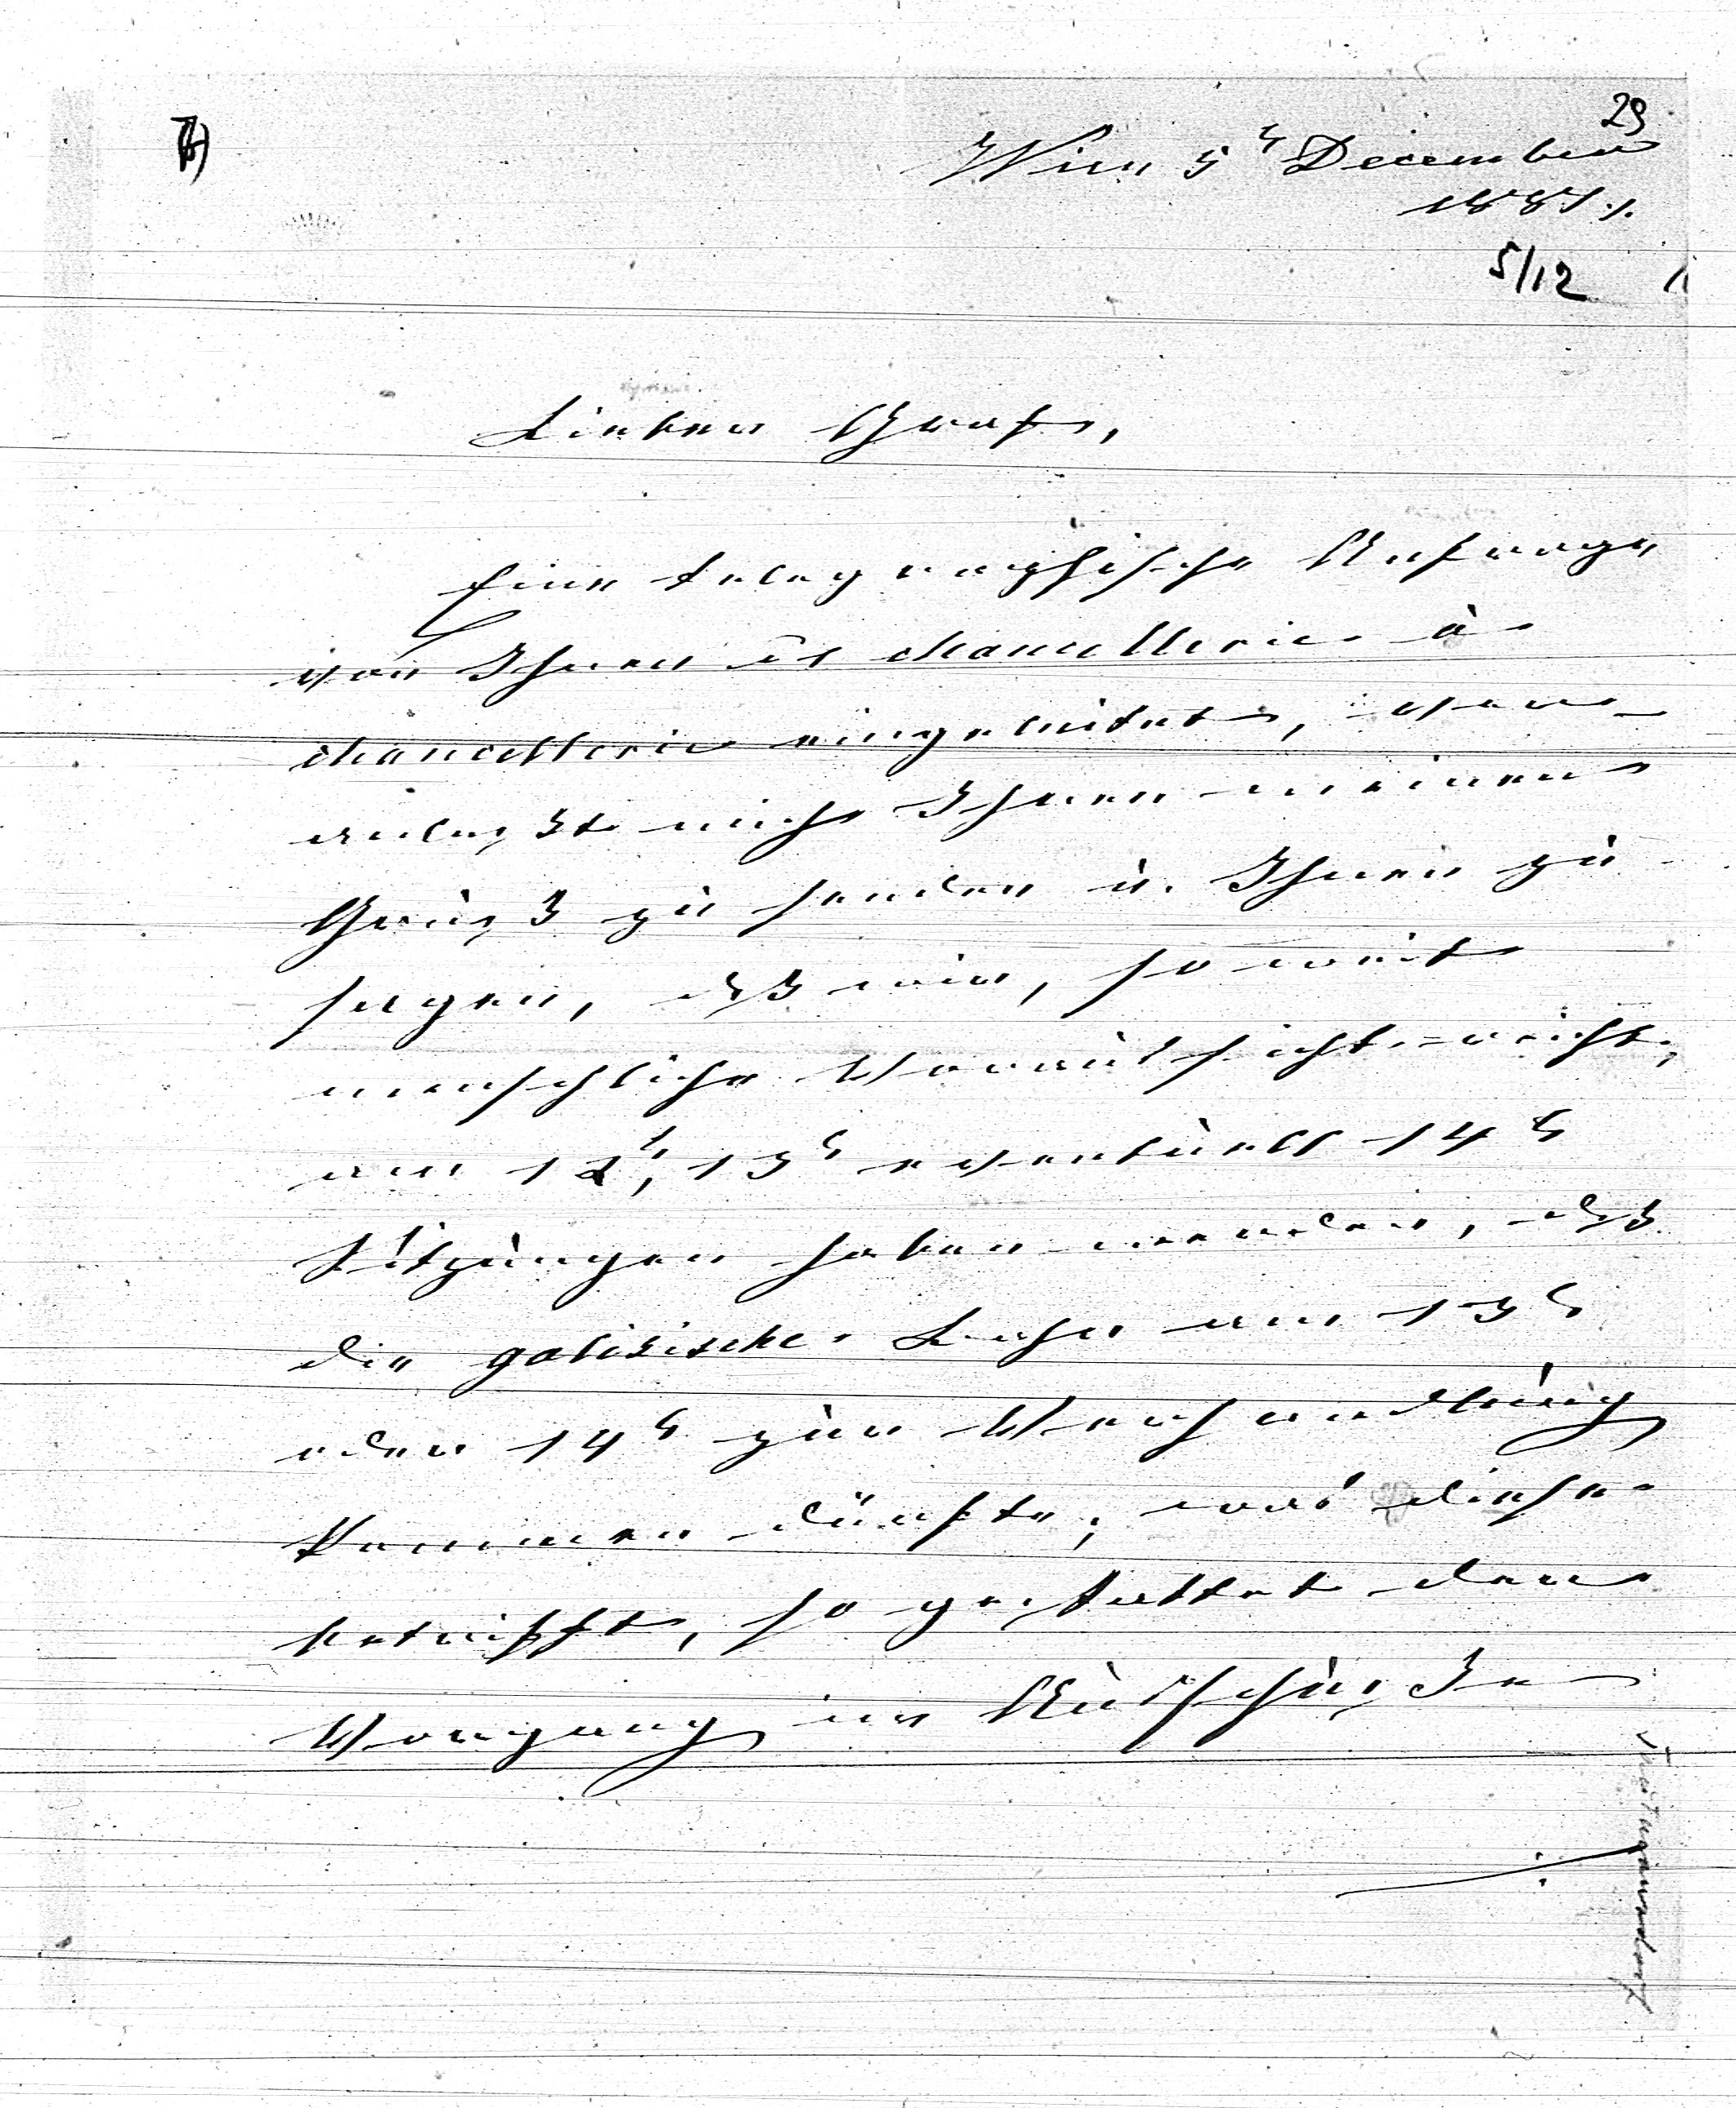 29
Wien 5t December
1887.
5/12
Lieber Graf,
Eine telegraphische Anfrage
von Ihnen is chancellerie à
chancellerie eingeleitet, ver-
anlaßt mich Ihnen meinen
Gruß zu senden u. Ihnen zu
sagen, daß wir, so weit
menschliche Voraussicht reicht,
am 12t, 13t eventuell 14t
Sitzungen haben werden, daß
die galizische Bahn am 13t
oder 14t zur Verhandlung
kommen dürfte; was diese
betrifft, so gestattet der
Vorgang im Ausschuße